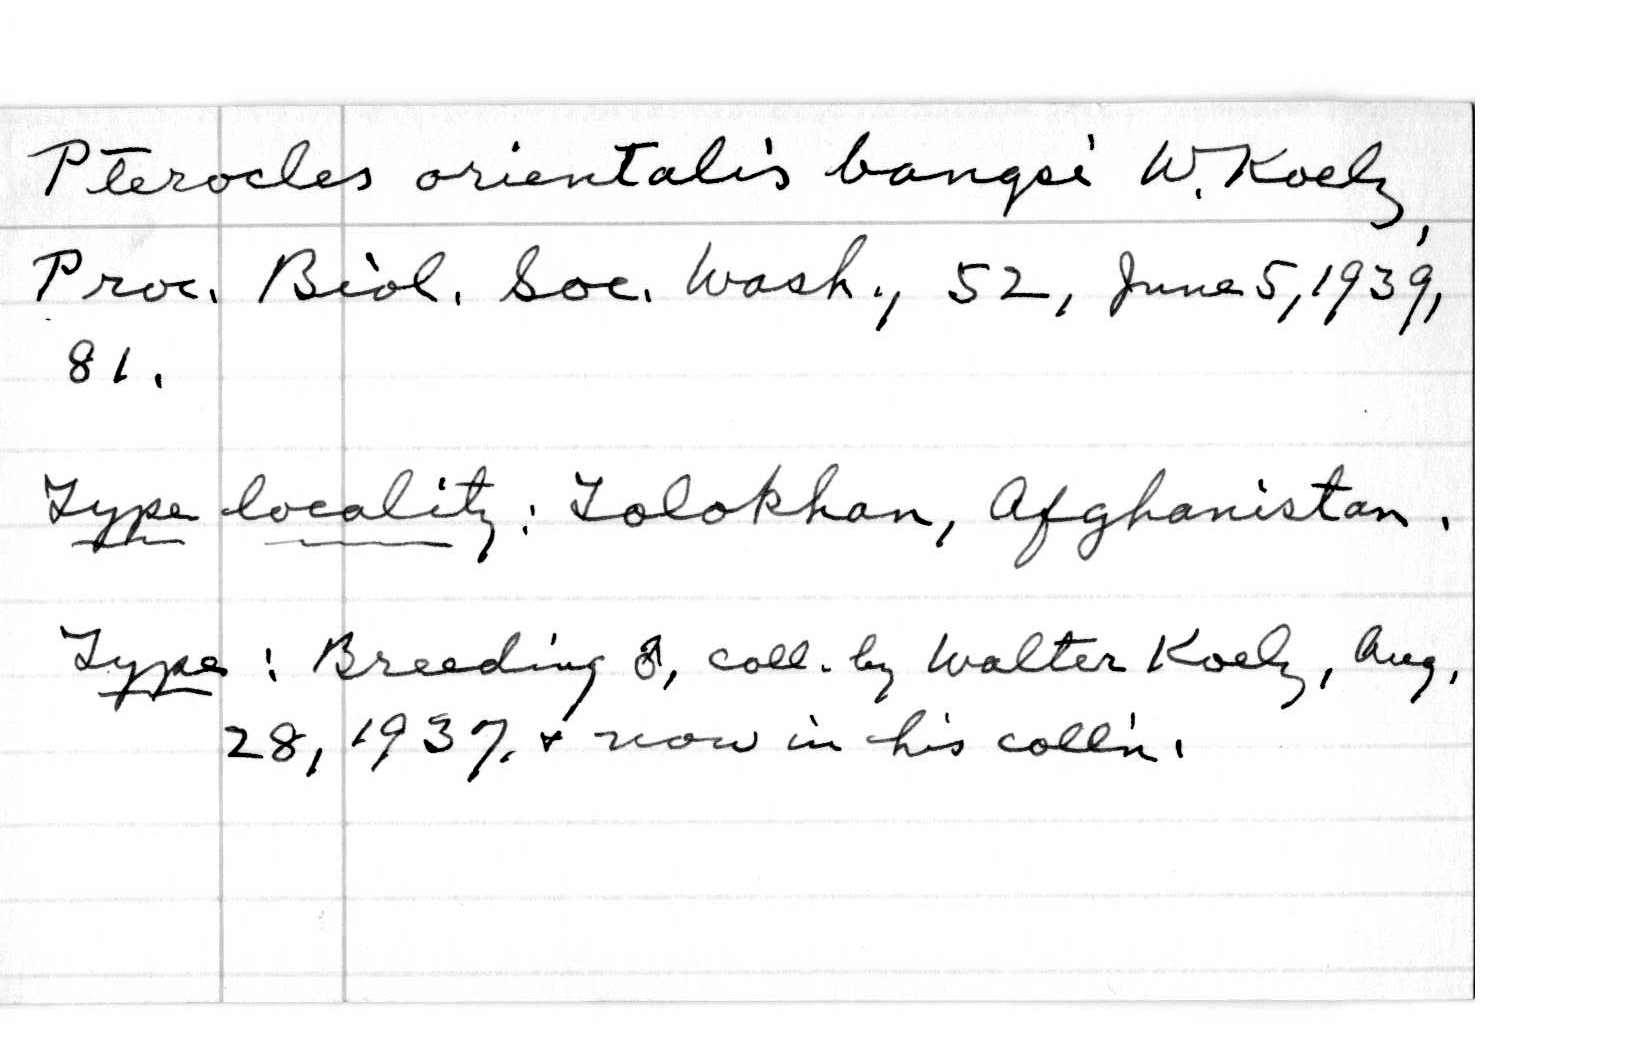 Pterocles orientalis bangsi W. Koelz,
Proc. Biol. Soc. Wash., 52, June 5, 1939,
81.
Type locality: Tolokhan, Afghanistan.
Type: Breeding ♂, coll. by Walter Koelz, Aug.
28, 1937, & now in his coll'n.